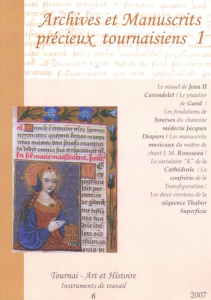 Archives et Manuscrits
précieux tournaisiens 1
Le missel de Jean II
Carondelet / Le psautier
de Gand /
Les fondations de
bourses du chanoine
médecin Jacques
Despars / Les manuscrits
musicaux du maître de
chant J. M. Rousseau /
Le cartulaire "K" de la
Cathédrale / La
confrérie de la
Transfiguration /
Les deux versions de la
séquence Thabor
Superficie
Tournai - Art et Histoire
Instruments de travail
6
2007